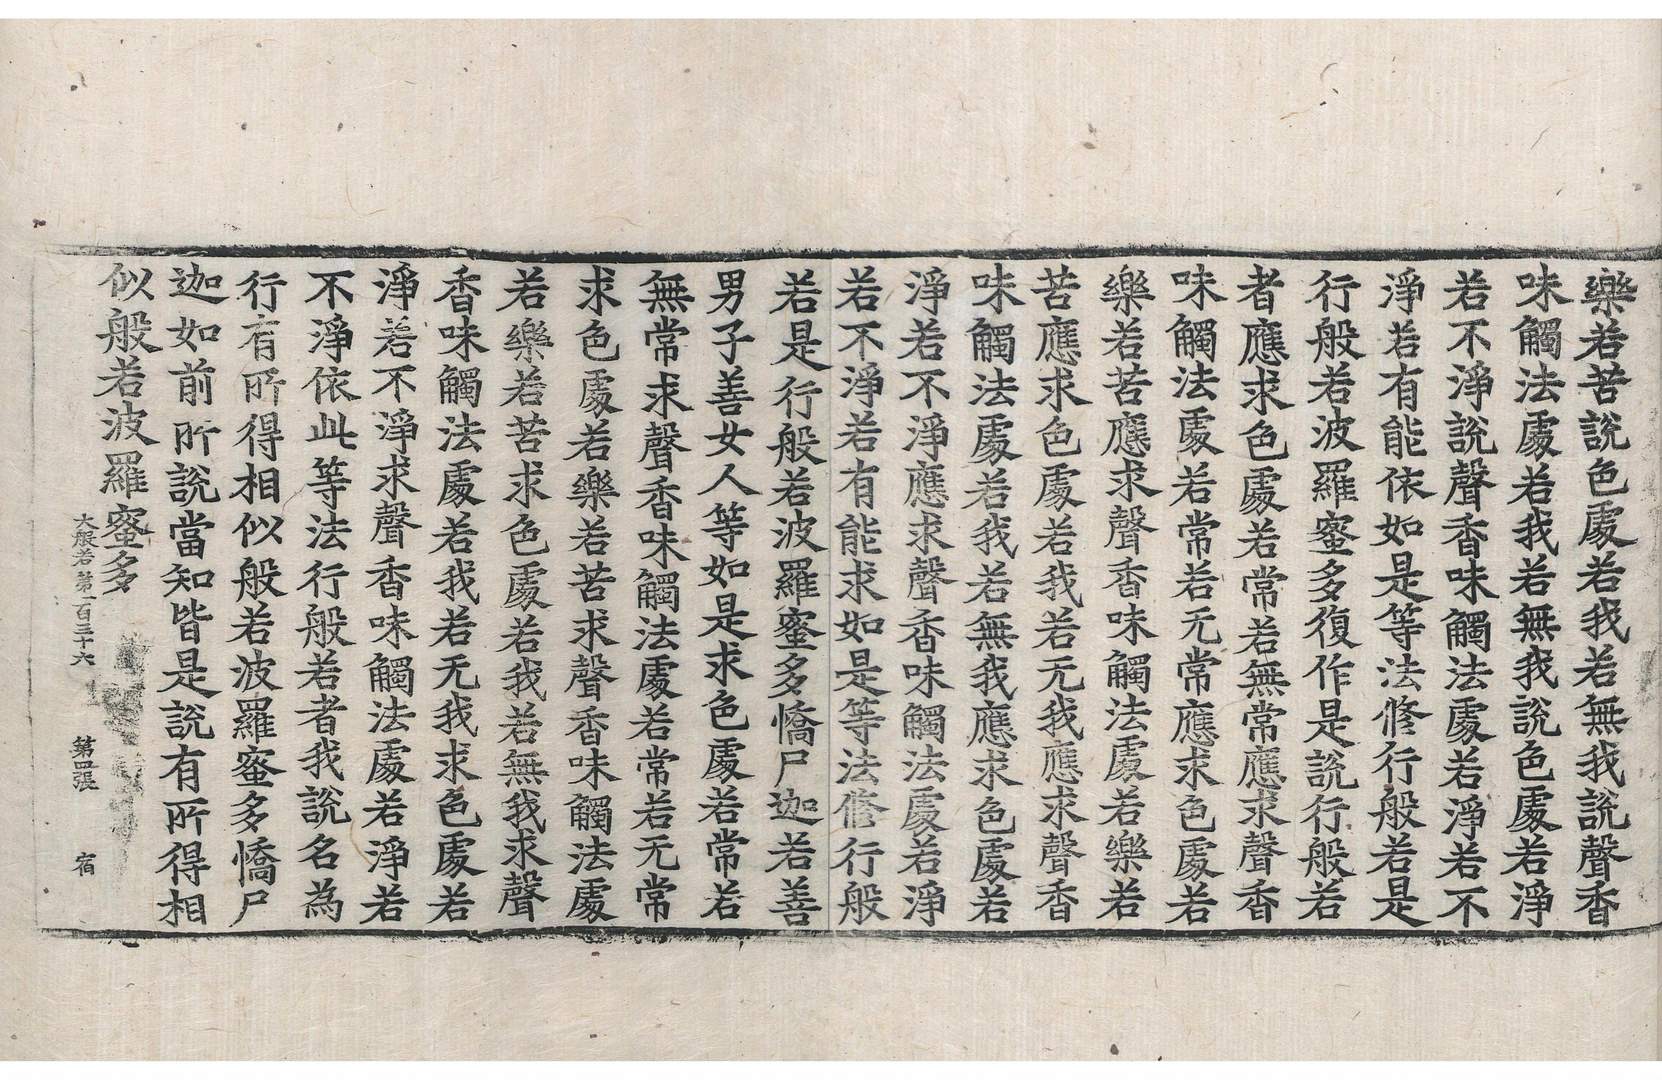 樂若苦說色處若我若無我說聲香
味觸法處若我若無我說色處若淨
若不淨說聲香味觸法處若淨若不
淨若有能依如是等法修行般若是
行般若波羅蜜多復作是說行般若
者應求色處若常若無常應求聲香
味觸法處若常若无常應求色處若
樂若苦應求聲香味觸法處若樂若
苦應求色處若我若无我應求聲香
味觸法處若我若無我應求色處若
淨若不淨應求聲香味觸法處若淨
若不淨若有能求如是等法修行般
若是行般若波羅蜜多憍尸迦若善
男子善女人等如是求色處若常若
無常求聲香味觸法處若常若无常
求色處若樂若苦求聲香味觸法處
若樂若苦求色處若我若無我求聲
香味觸法處若我若无我求色處若
淨若不淨求聲香味觸法處若淨若
不淨依此等法行般若者我說名為
行有所得相似般若波羅蜜多憍尸
迦如前所說當知皆是說有所得相
似般若波羅蜜多
大般若第一百三十六 第四張 宿